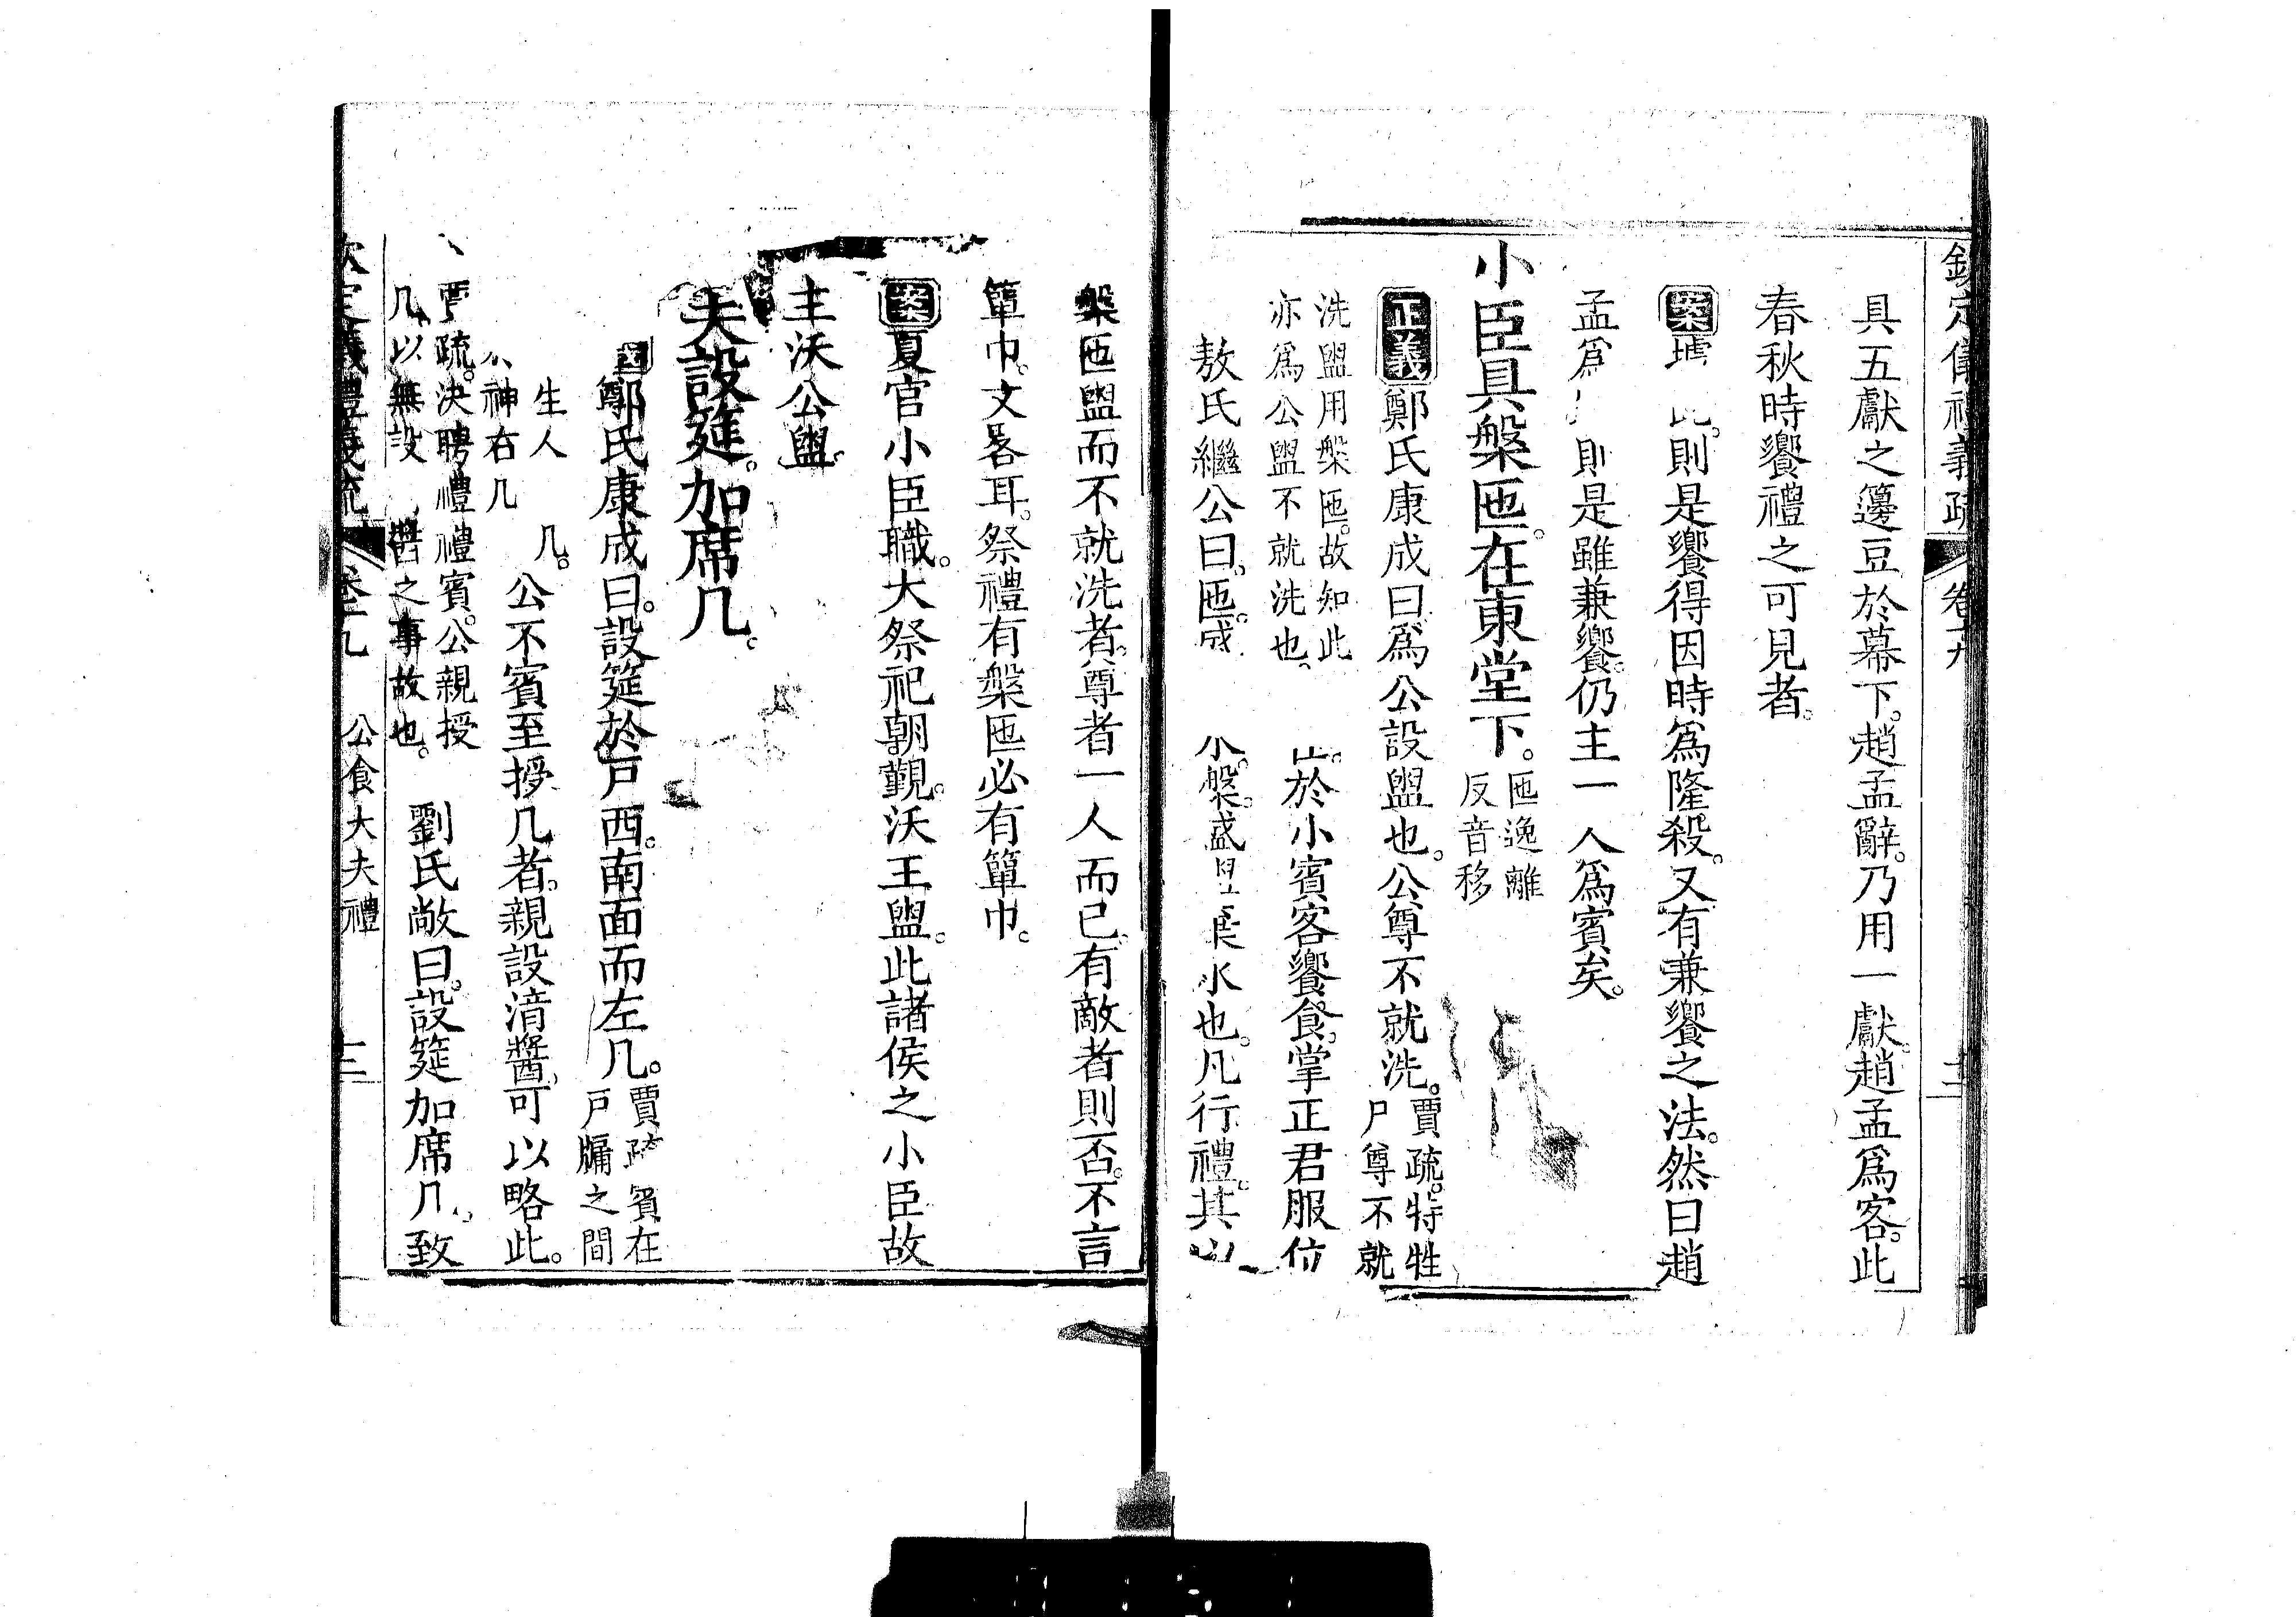 欽定儀禮義疏 卷十九
具五獻之籩豆於幕下。趙孟辭。乃用一獻。趙孟爲客。此
春秋時饗禮之可見者。
案據 此。則是饗得因時爲隆殺。又有兼饗之法。然曰趙
孟爲 則是雖兼饗。仍主一人爲賓矣。
小臣具槃匜。在東堂下。匜逸離
反音移
正義鄭氏康成曰爲公設盥也。公尊不就洗。賈疏。特牲
尸尊不就
洗盥用槃匜。故知此
亦爲公盥不就洗也。 於小賓客饗食。掌正君服位
敖氏繼公曰。匜。 槃。盛 水也。凡行禮。其
槃匜盥而不就洗者。尊者一人而已。有敵者則否。不言
簞巾。文畧耳。祭禮有槃匜必有簞巾。
案夏官小臣職。大祭祀朝覲。沃王盥。此諸侯之小臣故
主沃公盥。
夫設筵。加席几。
鄭氏康成曰。設筵於戶西。南面而左几。賈疏 賓在
戶牖之間
生人 几。
神右几 公不賓至授几者。親設湆醬。可以略此。
賈疏。決聘禮禮賓。公親授
几以無設 醬之事故也。 劉氏敞曰。設筵加席几。致
欽定儀禮義疏 卷十九 公食大夫禮 三